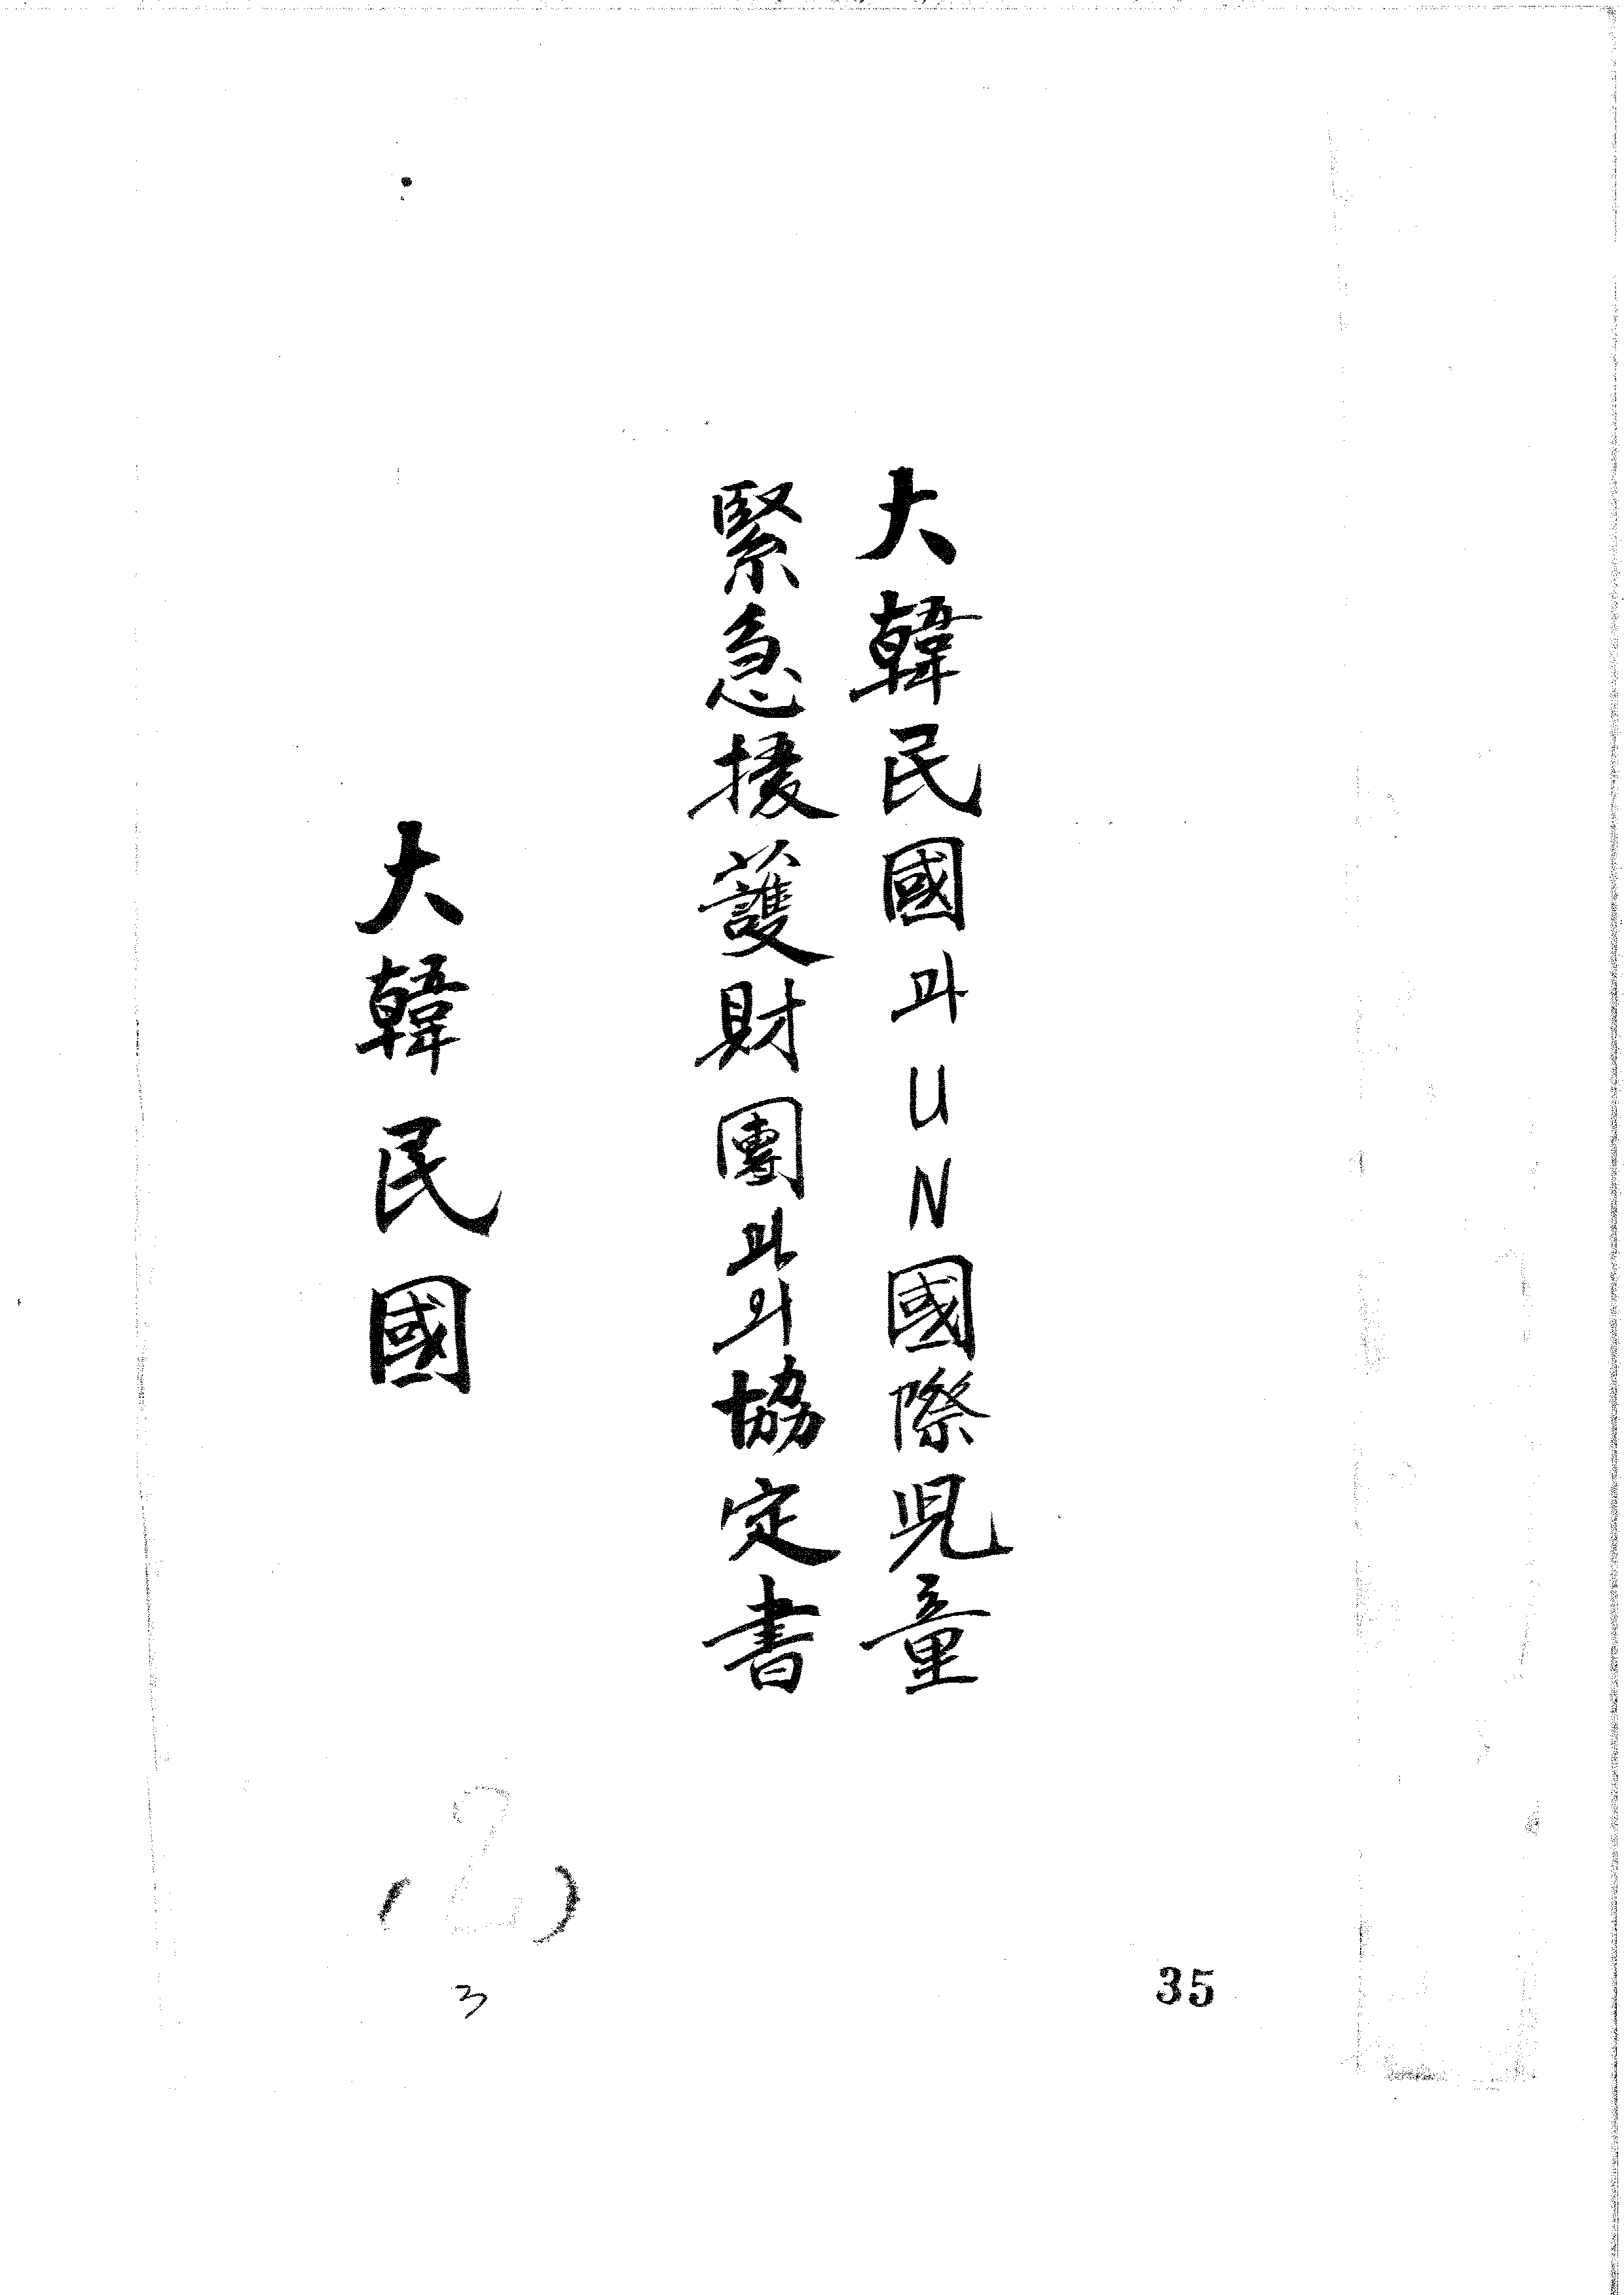 大韓民國과UN國際兒童
緊急援護財團과의協定書
大韓民國
(2)
3
35